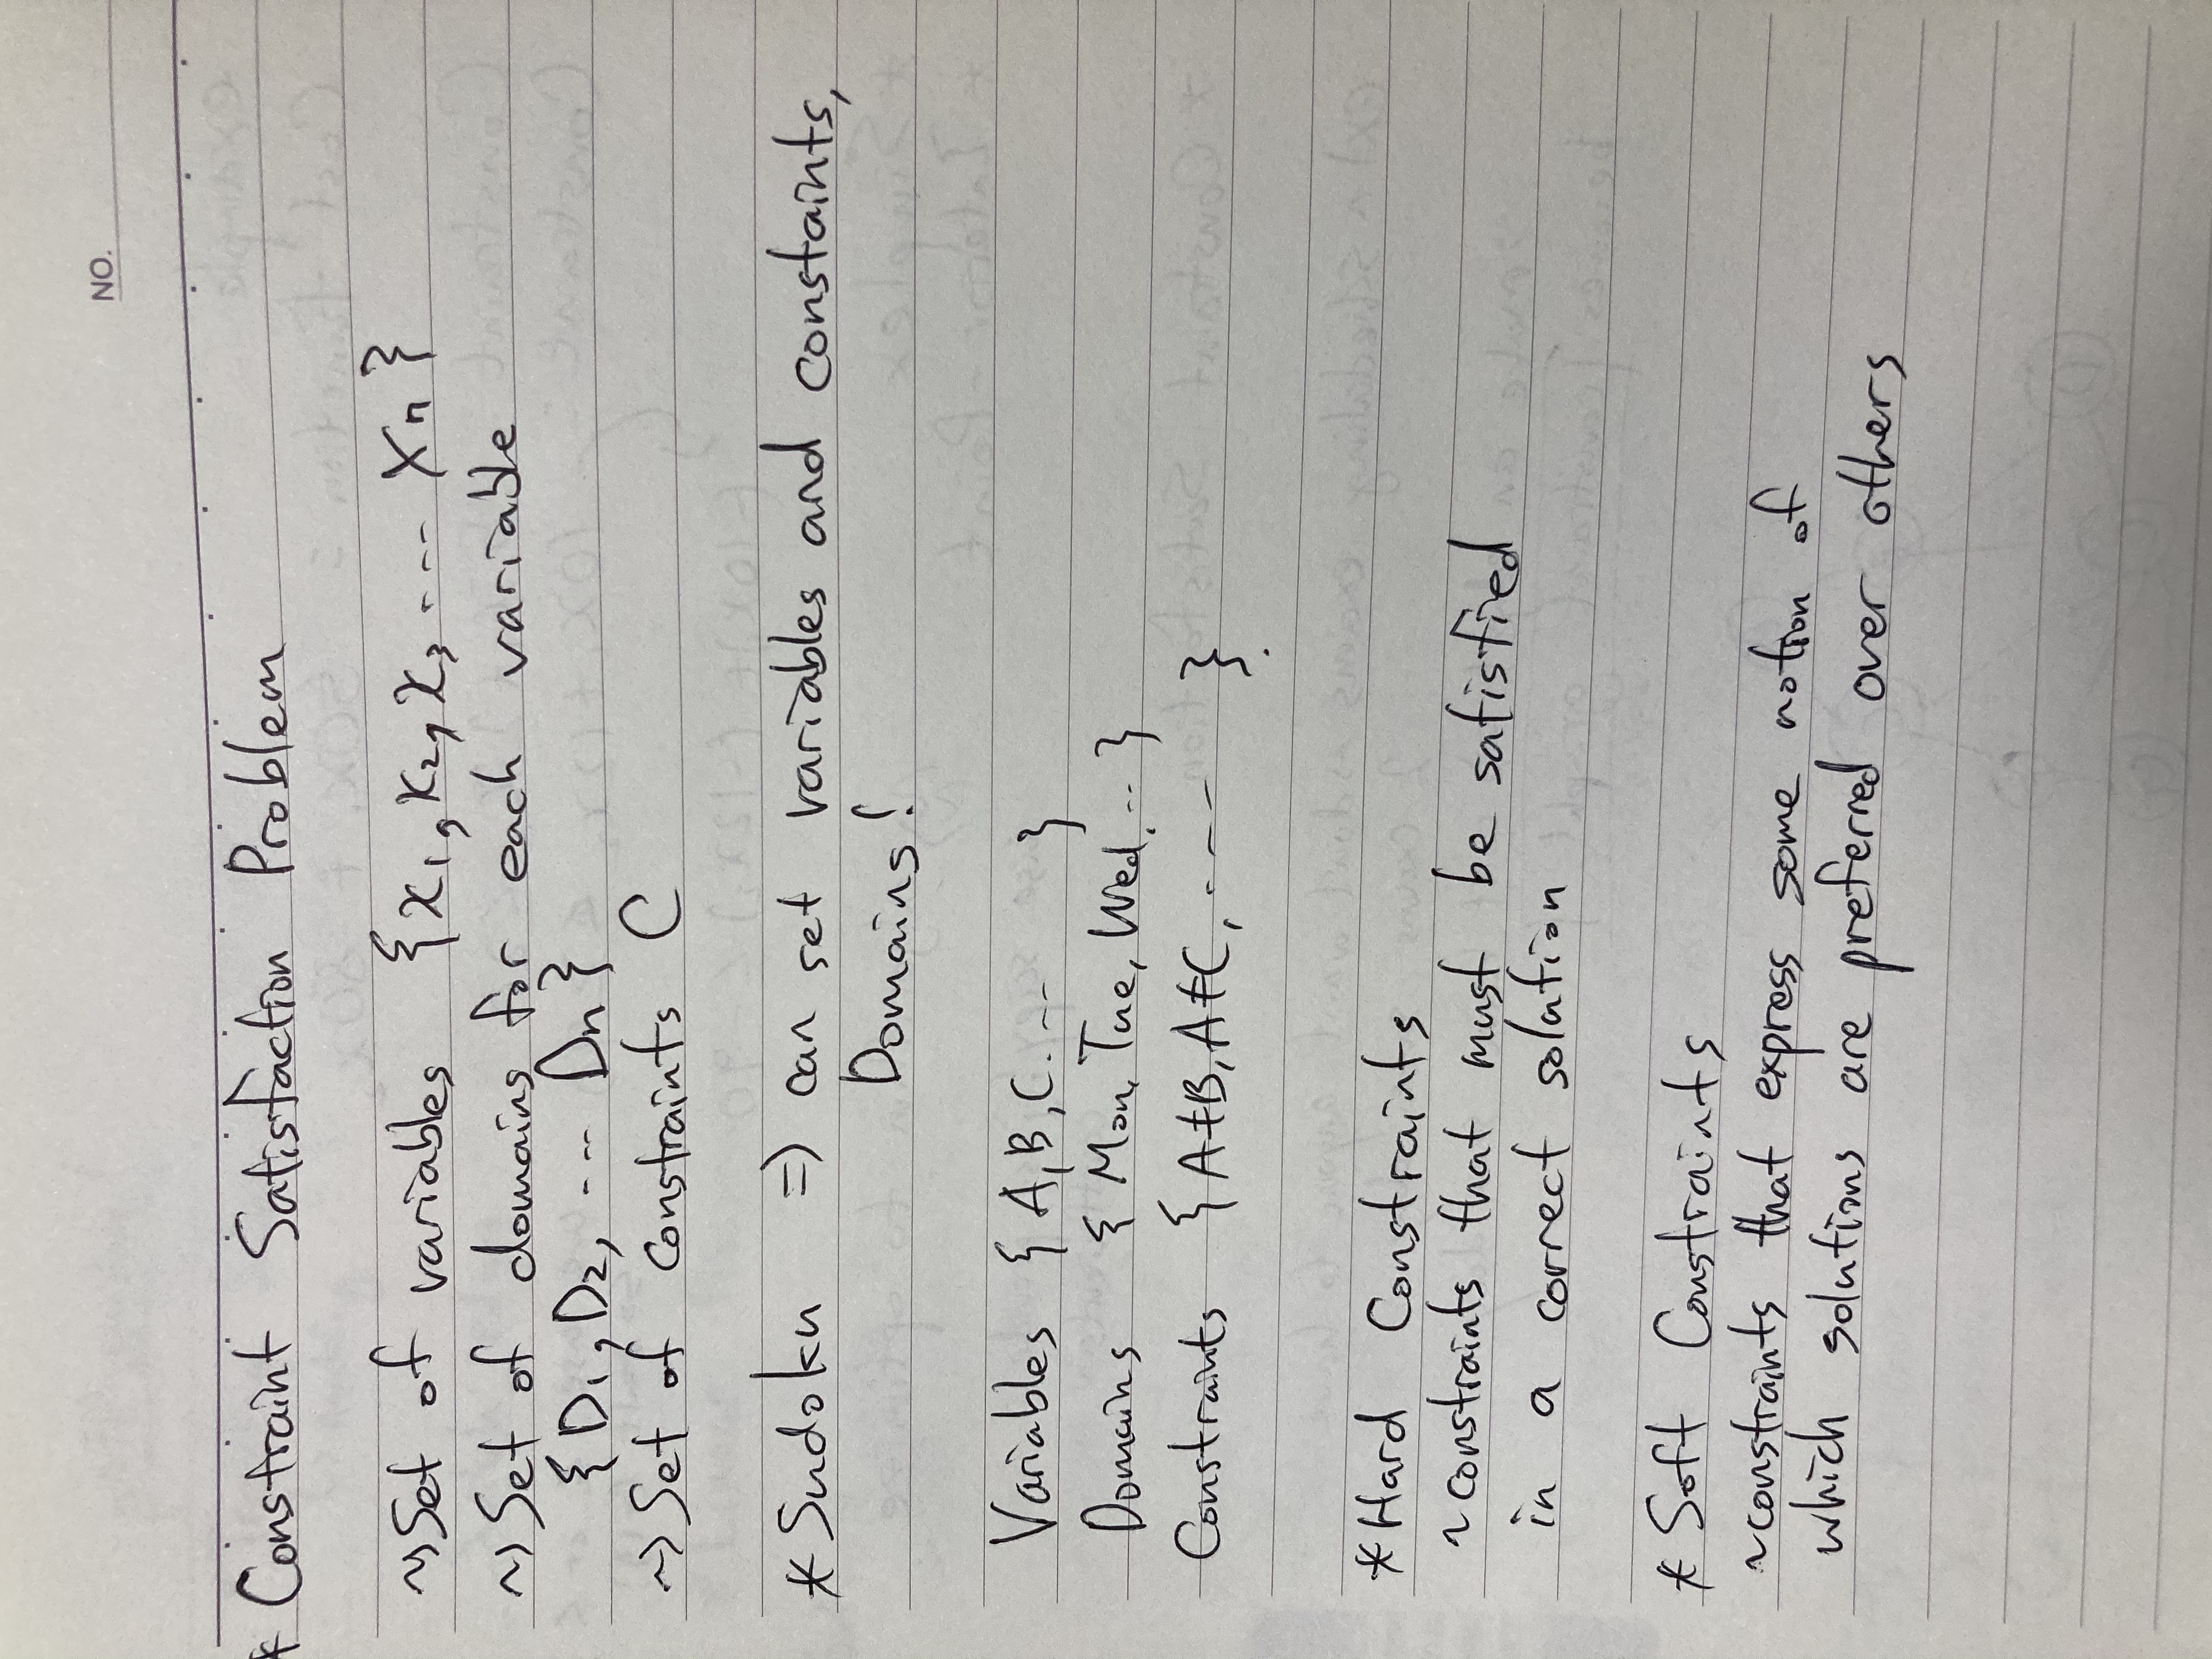 NO.
* Constraint Satisfaction Problem
~> Set of variables {x₁, x₂, x₃ ---- Xn}
~> Set of domains for each variable
{D₁, D₂, --- Dn}
~> Set of constraints C
* Sudoku => can set variables and constaints,
Domains!
Variables { A, B, C. -- }
Domains { Mon, Tue, Wed, -- }
Constraints { A≠B, A≠C, ---- }.
* Hard Constraints
~ constraints that must be satisfied
in a correct solution
* Soft Constraints
~ constraints that express some notion of
which solutions are preferred over others